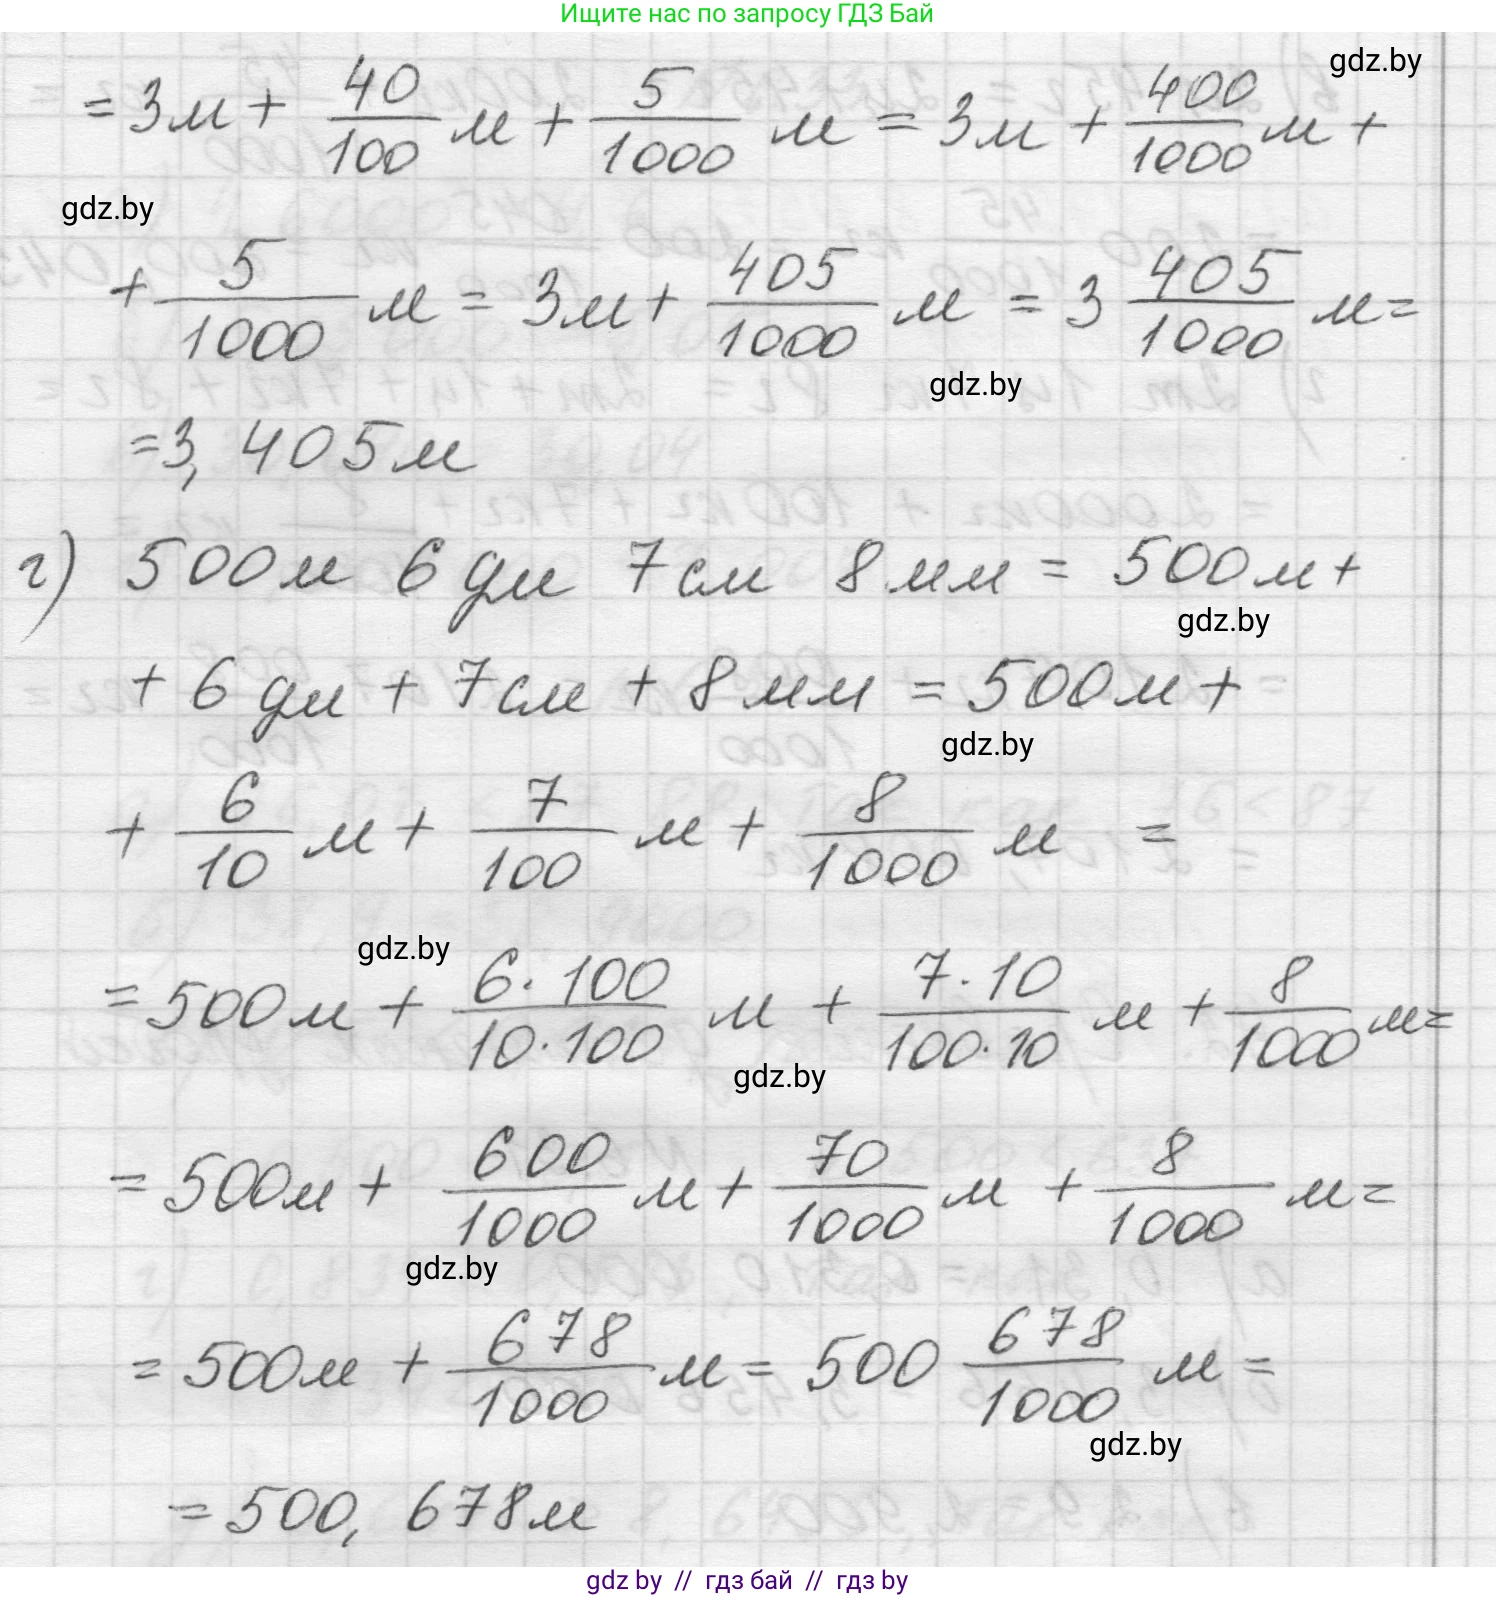 Ищите нас по запросу ГДЗ Бай
gdz.by
= 3м + 40/100 м + 5/1000 м = 3м + 400/1000 м +
gdz.by
+ 5/1000 м = 3м + 405/1000 м = 3 405/1000 м =
gdz.by
= 3,405м
г) 500м 6 дм 7см 8мм = 500м +
gdz.by
+ 6 дм + 7см + 8мм = 500м +
gdz.by
+ 6/10 м + 7/100 м + 8/1000 м =
gdz.by
= 500м + 6·100/10·100 м + 7·10/100·10 м + 8/1000 м =
gdz.by
= 500м + 600/1000 м + 70/1000 м + 8/1000 м =
gdz.by
= 500м + 678/1000 м = 500 678/1000 м =
gdz.by
= 500,678м
gdz by // гдз бай // гдз by